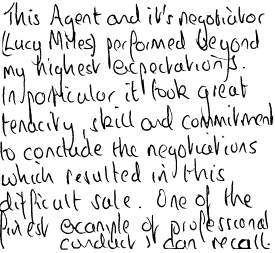 This Agent and it's negotiator
(Lucy Miles) performed beyond
my highest expectations.
In particular it took great
tenacity, skill and commitment
to conclude the negotiations
which resulted in this
difficult sale. One of the
finest example of professional
conduct I can recall.